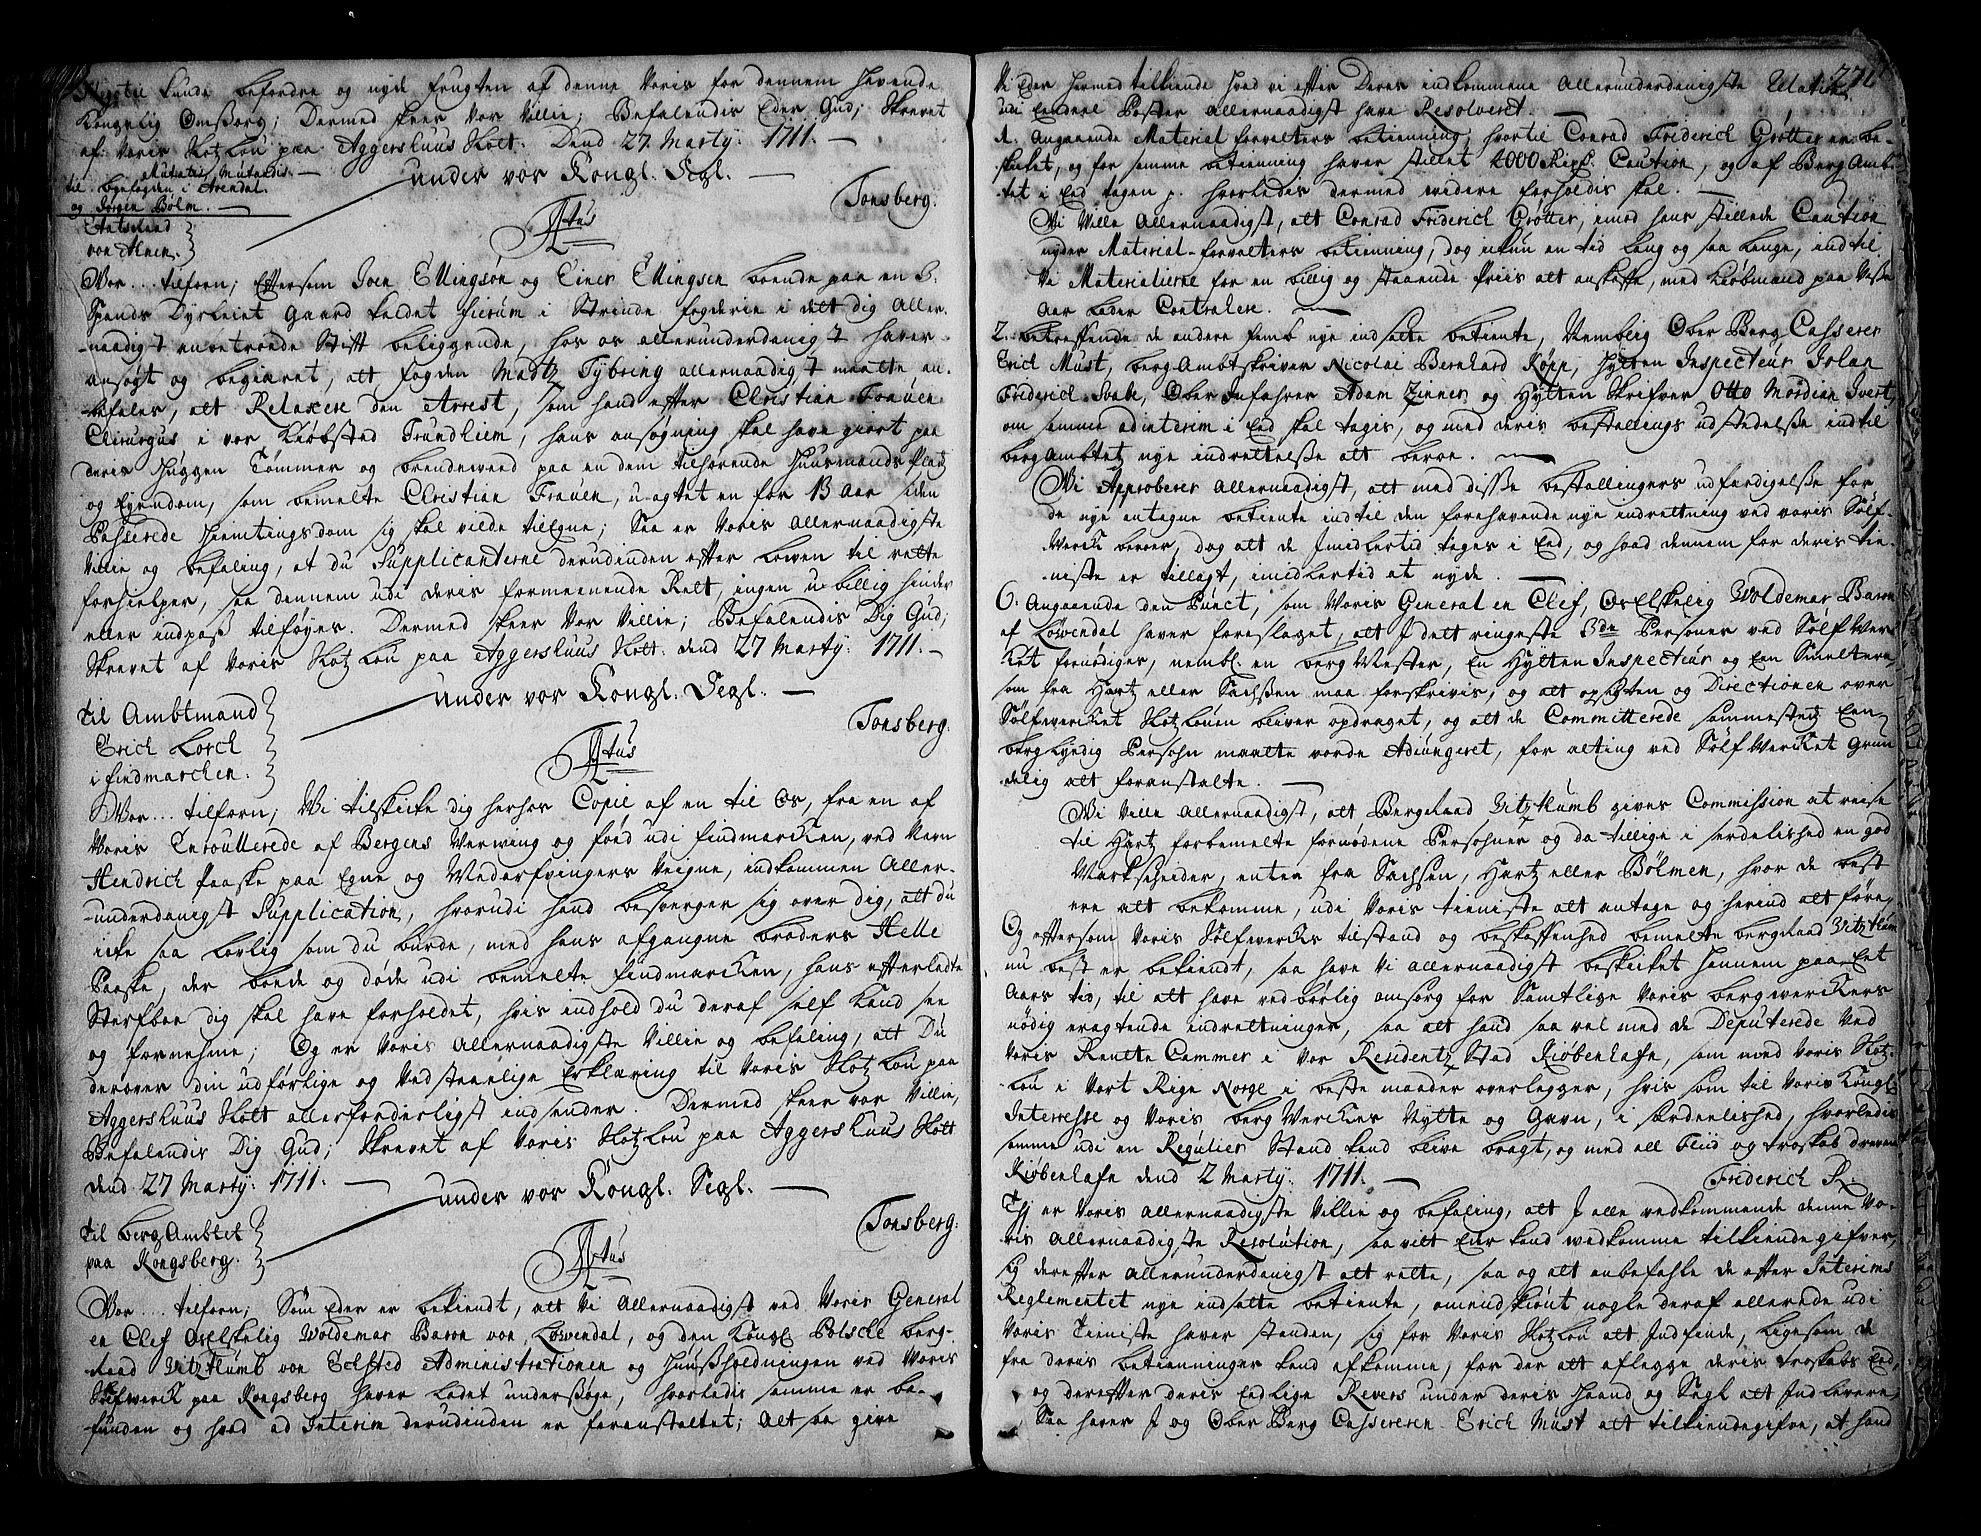 kunde befordre og nyde frugten af denne Voris for dennem havende
Kongelig Omsßorg; Dermed skeer Vor Villie; Befalendis Eder Gud; Skrevet
af Voris Slotz Lou paa Aggershuus Slott. Dend 27 Marty: 1711. —
Mutatis Mutandis. —
til byefogden i Arendal
og Jørgen Bølm. —
under vor Kongl. Segl. —
Tonsberg.
von Ahnen.
Vor ... tilforn; Eftersom Joen Ellingsøn og Einer Ellingsen boende paa en 3.
Spands Dyrleiet Gaard kaldet hierum i Strinde fogderie i det dig Aller-
naadigst anbetroede Stift beliggende, hos os allerunderdanigst haver
ansøgt og begiæret, at fogden Madtz Tybring allernaadigst maatte an-
befales, att Relaxere den Arrest, som hand efter Christian Frauen
Chirurgus i vor Kiøbsted Trundhiem, hans ansøgning skal have giort paa
deris Huggen Tømmer og brendeweed paa en dem tilhørende Huusmands Platz
og Eyendom, som bemelte Christian Frauen, u-agtet en for 13 Aar siden
Passerede Hiemtingsdom sig skal vilde tilEgne; Saa er Voris allernaadigste
Villie og befaling, at du Supplicanterne derudinden efter Lowen til rette
forhielper, saa dennem udi deris formeenende Rett, ingen u-billig hinder
eller indpaß tilføyes. Dermed skeer Vor Villie; Befalendis Dig Gud;
Skrevet af Voris Slotz Lou paa Aggershuus Slott. dend 27 Marty: 1711. —
under vor Kongl. Segl. —
Tonsberg.
Til Ambtmand
Erich Lorch
i findmarchen.
Vor ... tilforn; Wi tilskicke dig herhos Copie af en til Os, fra en af
Voris Enroullerede af Bergens Verwing og föed udi findmarcken, ved Navn
Hendrich Paaske paa Egne og Medarfvingers Veigne, indkommen Aller-
underdanigst Supplication, hvorudi hand besverger sig over dig, att du
icke saa lovlig som du burde, med hans afgangne broders Helle
Paaske, der boede og døde udi bemelte findmarcken, hans efterladte
Sterfboe dig skal have forholdet, hvis indhold du deraf self kand see
og fornehme; Og er Voris Allernaadigste Villie og befaling, att Du
derover din udførlige og Vedstaaelige Erklæring til Voris Slotz Lou paa
Aggershuus Slott allerforderligst indsender. Dermed skeer vor Villie,
Befalendis Dig Gud; Skrevet af Voris Slotz Lou paa Aggershuus Slott
dend 27 Marty: 1711. —
under vor Kongl. Segl. —
Tonsberg.
Til berg Ambtet
paa Kongsberg.
Vor ... tilforn; Som Eder er bekiendt, att Vi Allernaadigst ved Voris General
en Chef Oselskelig Woldemar Baron von Løwendal, og den Kongl. Polsche berg-
Raad Vitzthumb von Echsted Administrationen og Huußholdningen ved Voris
Sølfwerck paa Kongsberg haver ladet undersøge, hvorledis samme er be-
funden og hvad ad Interim derudinden er foranstaltet; Alt saa give
271
Vi Eder hermed tilkiende hvad vi efter Deris indkomne Allerunderdanigste Relation
udi Eendeel Poster allernaadigst have Resolveret. —
1. Angaaende Material forvalters betienning, hvortil Conrad Friderich Grötter er be-
skicket, og for samme betienning haver stillet 2000 Rixd. Caution, og af Berg Amb-
tet i Eed tagen p. hvorledes dermed widere forholdis skal. —
Vi Ville Allernaadigst, att Conrad Friderich Grötter, imod hans stillede Caution
nyder Material-forvalters betienning, dog ickun en tid lang og saa lenge, indtil
Vi Materialierne for en billig og staaende Priis att anskaffe, med Kiøbmænd paa Visse
Aar lader Contrahere. —
2. betreffende de andre femb nye indsatte betiente, Nemblig Ober Berg Casserer
Erich Must, berg Ambtskriver Nicolai Bernhard Köpp, Hytten Inspecteur Johan
Friderich Svab, Ober Infahrer Adam Zinner og Hytten Skrifver Otto Mørdian Ivert,
om samme ad interim i Eed skal tagis, og med deris bestallings udstedelße indtil
berg Ambtet nye indrettelße att beroe. —
Wi Approberer Allernaadigst, att med disße bestallingers udfærdigelße for
de nye antagne betiente indtil den forehavende nye indrettning ved voris Sølf-
Werck beroer, dog att de Imidlertid tages i Eed, og hvad dennem for deris tie-
niste er tillagt, imidlertid at nyde. —
6. Angaaende den Punct, som Voris General en Chef, Os Elskelig Woldemar Baron
af Löwendal haver foreslaget, att I det ringeste 3de Personer ved Sølf Wer-
cket fornødiges, nembl. en berg Mester, En Hytten Inspecteur og Een Smeltere,
som fra Hartz eller Sachßen maa forskrivis, og att opsigten og Directionen over
Sølfwercket Slotz Louen bliver opdraget, og att de Committerede sammesteds Een
berg kyndig Persohn maatte vorde Adiungeret, for alting ved Sølf Wercket Grun-
delig att foranstalte. —
Wi Ville Allernaadigst, att Bergraad Vitzthumb gives Commission at reise
til Hartz forbemelte fornødene Persohner og da tillige i serdelished en god
Markscheider, enten fra Sachsen, Hartz eller Bölmen, hvor de best
ere att bekomme, udi Voris tieniste att antage og herind att føre,
Og eftersom Voris Sølfwercks tilstand og beskaffenhed bemelte bergraad Vitzthum
nu best er bekiendt, saa have Vi allernaadigst beskicket hannem paa Eet
Aars tid, til att have ved børlig omsorg for Samtlige Voris bergwerckers
nödig eragtende indrettninger, saa att hand saa vel med de Deputerede Ved
Voris Rente Cammer i vor Residentz Stad Kiøbenhafn, som med Voris Slotz-
Lou i Vort Rige Norge i beste maader overlegger, hvis som til Voris Kongl.
Interresse og Voris berg Wercker Nytte og Gavn, i særdelished, hvorledis
samme udi en Regulier Stand kand blive bragt, og med all fliid og troskab drevet
Kiøbenhafn dend 2 Marty: 1711. —
Friderich R.
Thj er Voris allernaadigste Villie og befaling, at I alle vedkommende denne Vo-
ris Allernaadigste Resolution, saa vit Eder kand wedkomme tilkiendegifver,
sig derefter Allerunderdanigst att rette, saa og att anbefahle de efter Interims
Reglementet nye indsatte betiente, omendskiønt nogle deraf allerede udi
Voris Tieniste haver standen, sig for Voris Slotz Lou att Indfinde, ligesom de
fra deris betienninger kand afkomme, for der att aflegge deris troskabs Eed,
og derefter deris Eedlige Revers under deris Haand og Segl att Indlevere,
Saa haver I og Ober Berg Cassereren Erich Must att tilkiendegifve, at hand